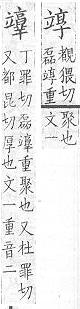 䇏覩猥切
磊䇏重
聚也
文一
丁罪切磊重聚也又杜罪切
又都昆切厚也文一重音二